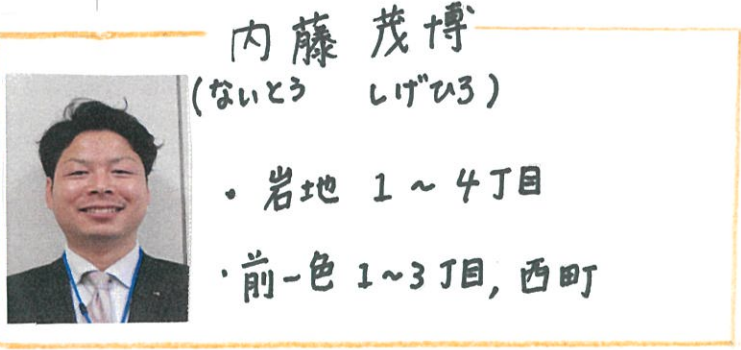 内藤 茂博
(ないとう しげひろ)
・岩地 1～4丁目
・前一色 1～3丁目, 西町